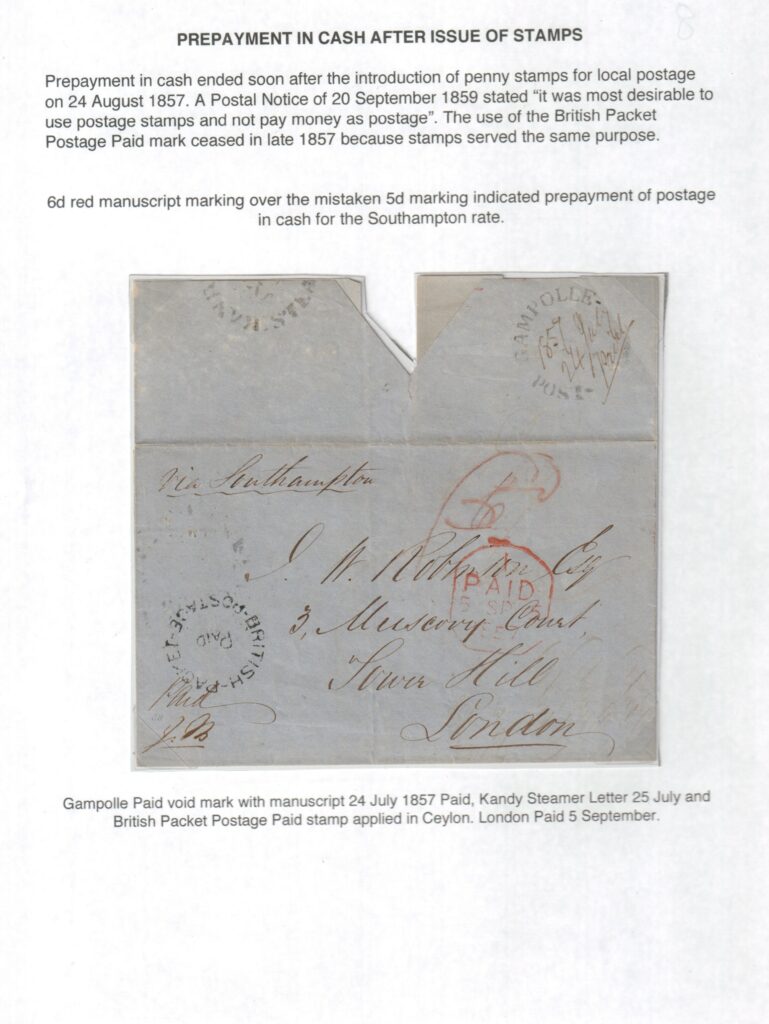 8
PREPAYMENT IN CASH AFTER ISSUE OF STAMPS
Prepayment in cash ended soon after the introduction of penny stamps for local postage
on 24 August 1857. A Postal Notice of 20 September 1859 stated “it was most desirable to
use postage stamps and not pay money as postage”. The use of the British Packet
Postage Paid mark ceased in late 1857 because stamps served the same purpose.
6d red manuscript marking over the mistaken 5d marking indicated prepayment of postage
in cash for the Southampton rate.
GAMPOLLE-
1857 July
24
POST-
via Southampton
J. W. Robinson Esq
PAID
3, Muscovy Court
Tower Hill
London
BRITISH-PACKET-POSTAGE-
PAID
Paid
Gampolle Paid void mark with manuscript 24 July 1857 Paid, Kandy Steamer Letter 25 July and
British Packet Postage Paid stamp applied in Ceylon. London Paid 5 September.